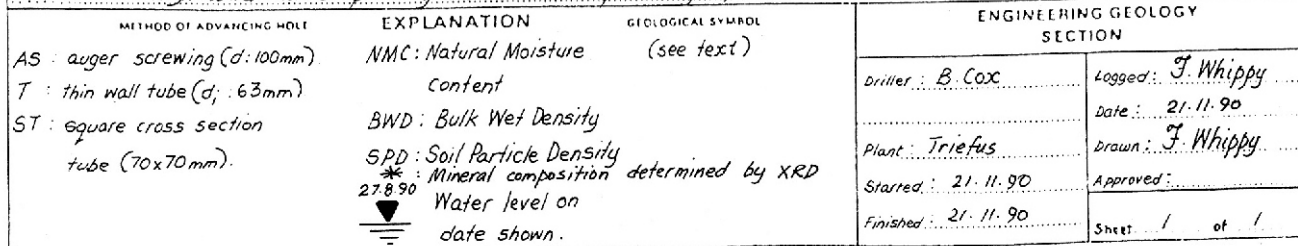 METHOD OF ADVANCING HOLE
AS : auger screwing (d: 100mm)
T : thin wall tube (di : 63mm)
ST : square cross section
tube (70x70mm).
EXPLANATION
NMC: Natural Moisture
Content
BWD: Bulk Wet Density
SPD: Soil Particle Density
* : Mineral composition determined by XRD
27.8.90
Water level on
date shown.
GEOLOGICAL SYMBOL
(see text)
ENGINEERING GEOLOGY
SECTION
Driller: B. Cox
Plant: Triefus
Started: 21.11.90
Finished: 21.11.90
Logged: F. Whippy
Date: 21.11.90
Drawn: F. Whippy
Approved:
Sheet 1 of 1